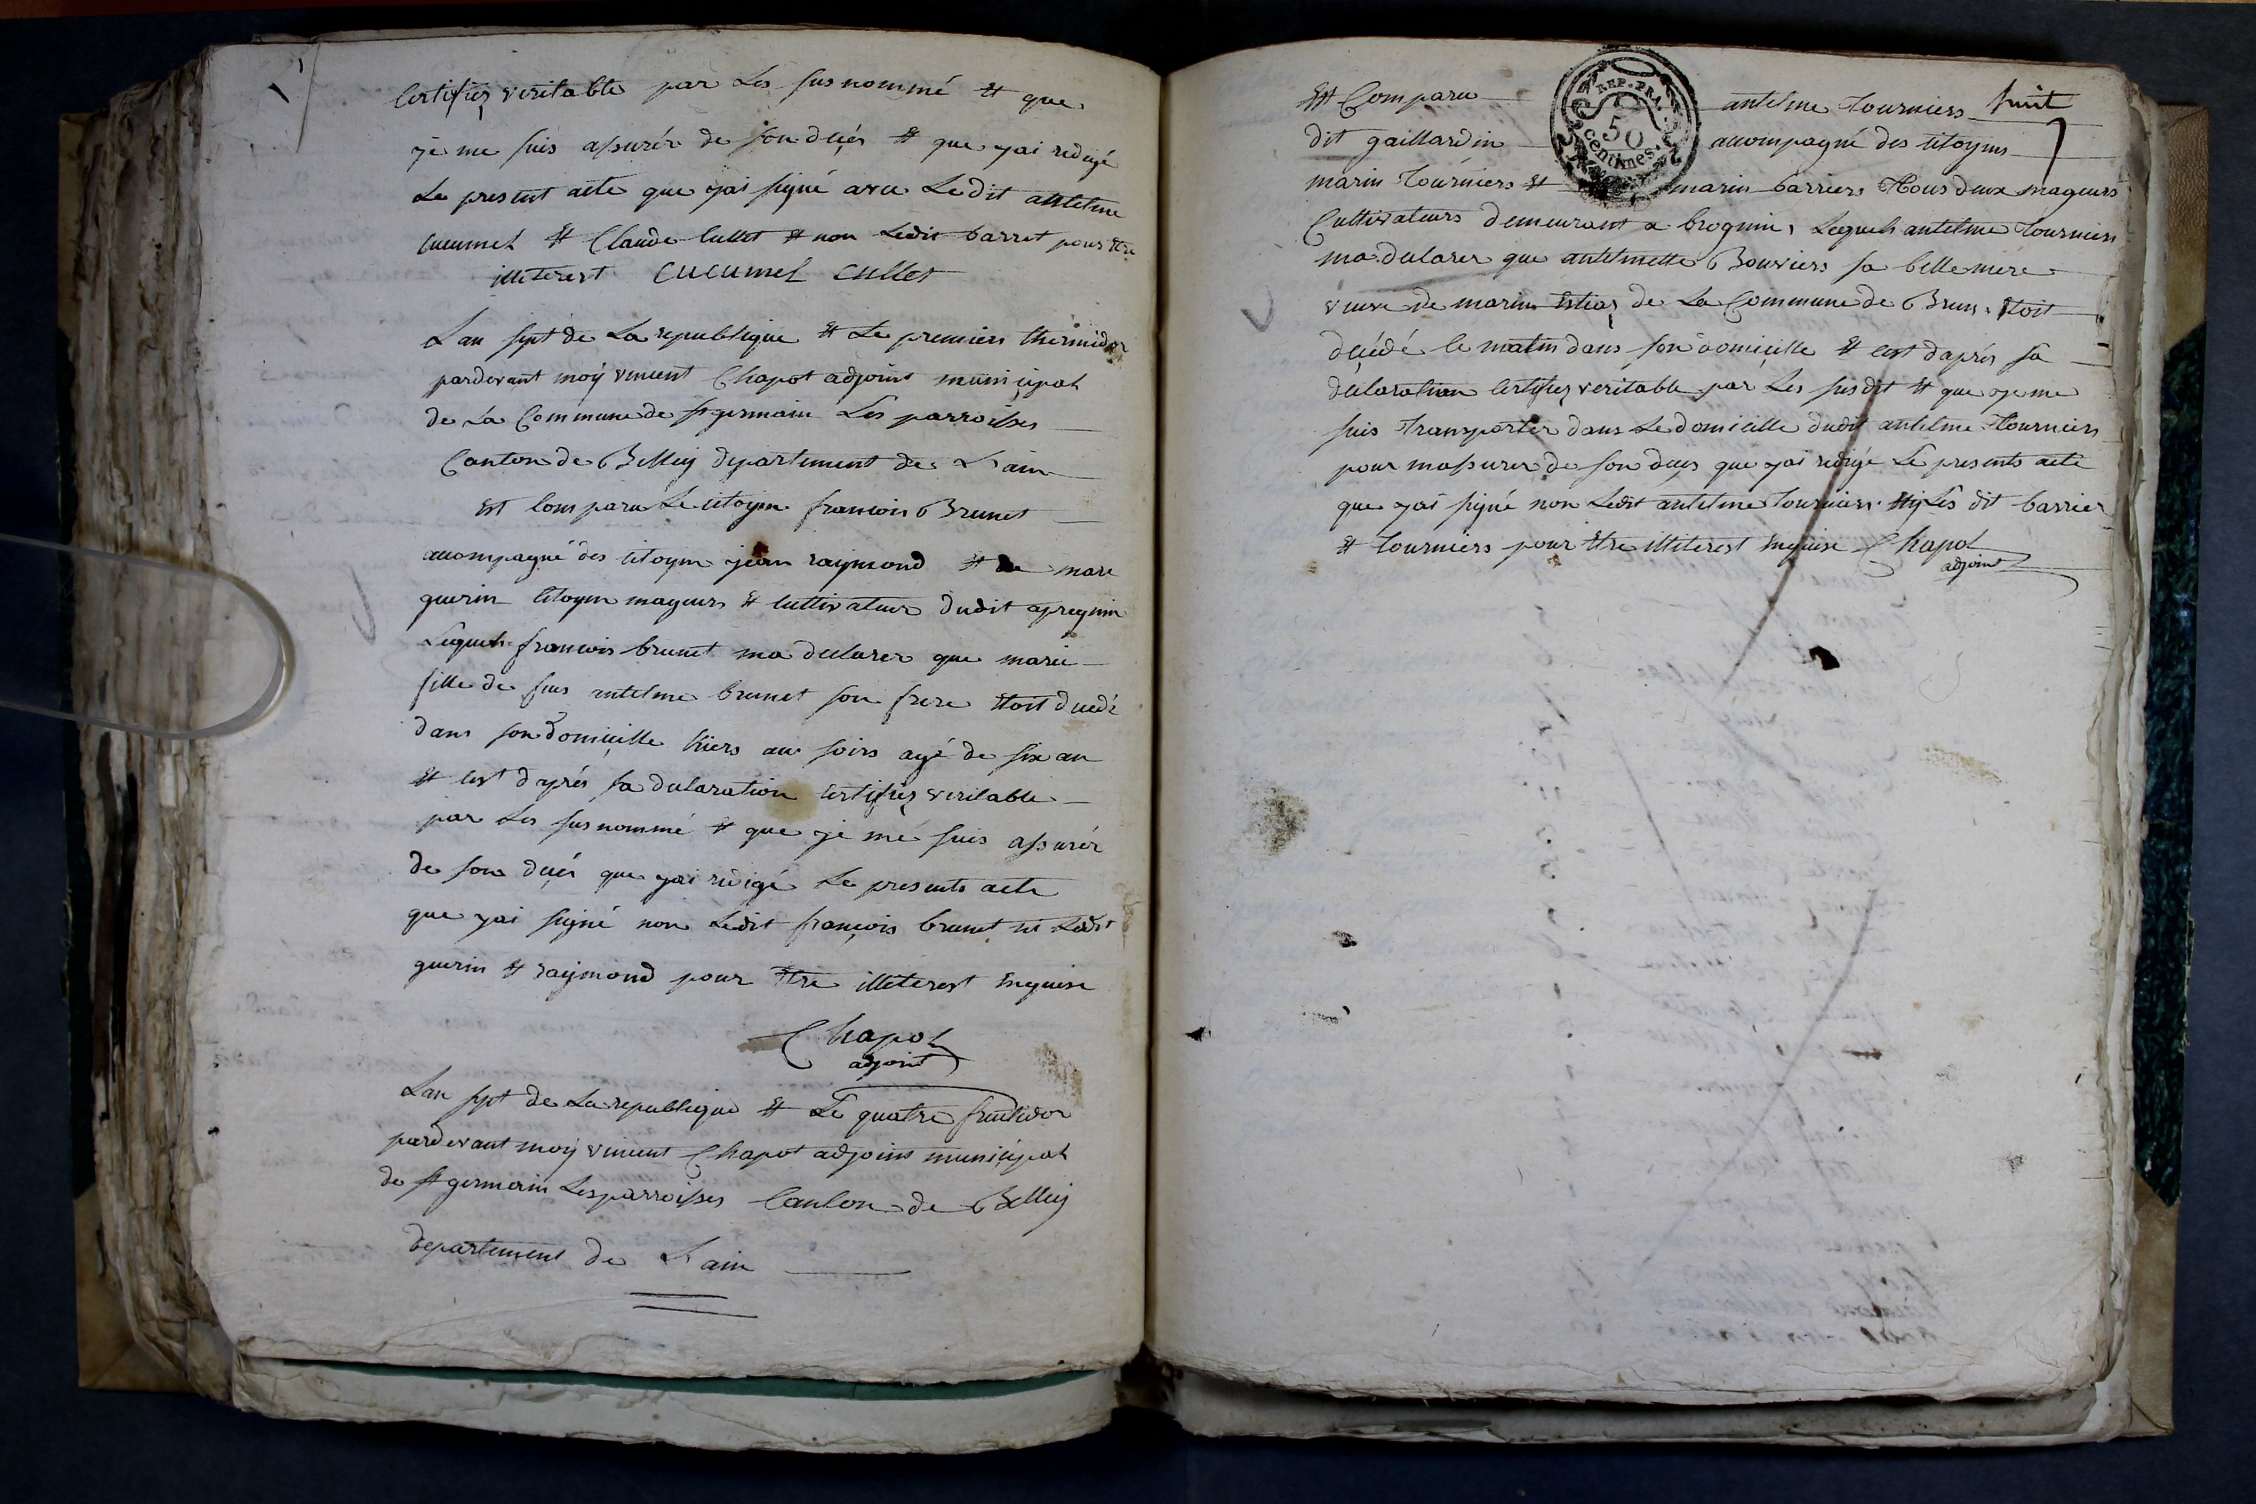 Certifiez veritable par Les sus nommé et que
je me suis assurér de son déçés et que jai redigé
Le present acte que jai signé avec Ledit antelme
cucumel et Claude Cullet et non Ledit barret pour etre
illiterest CUCUMEL CULLET
Lan sept de La republique et Le premiers thérmidor
pardevant moÿ vincent Chapot adjoint municipal
de La Commune de st germain Les parroisses
Canton de Belleÿ departement de L'ain
est comparu Le citoyen francois Brunet
accompagné des citoyen jean raymond et de marc
guerin citoyen mageurs et cultivateur dudit apregnin
Lequel francois brunet ma declarer que marie
fille de feus antelme brunet son frere etoit decedé
dans son domicille hiers au soirs agé de six an
et cest d'aprés sa declaration certifiez veritable
par Les sus nommé et que je mé suis assurér
de son déçés que jai redigé Le presents acte
que jai signé non Ledit françois brunet ni Ledit
guerin et raÿmond pour etre illeterest enquise
Chapot
adjoint
Lan sept de La republique et Le quatre fructidor
pardevant moÿ vincent Chapot adjoint municipal
de st germain Lesparroisses Canton de Belleÿ
departement de L'ain
Est Comparu antelme tourniers huit
dit gaillardin accompagné des citoyens
marin tourniers et marin barriers tous deux mageurs
Cultivateurs demeurant a brognin, Lequel antelme tourniers
ma declarer que antelmette Bouviers sa belle mere
veuve de marin de La Commune de Bren, etoit
déçédé le matin dans son domicille et cest daprés sa
déclaration certifiez veritable par Les susdit et que je me
suis transporter dans Le domicille dudit antelme tourniers
pour massurer de son deçes que jai redigé Le presents acte
que jai signé non Ledit antelme tourniers niÿ Les dit barrier
et tourniers pour etre illiterest enquise Chapot
adjoint
REP. FRA.
50
centimes.